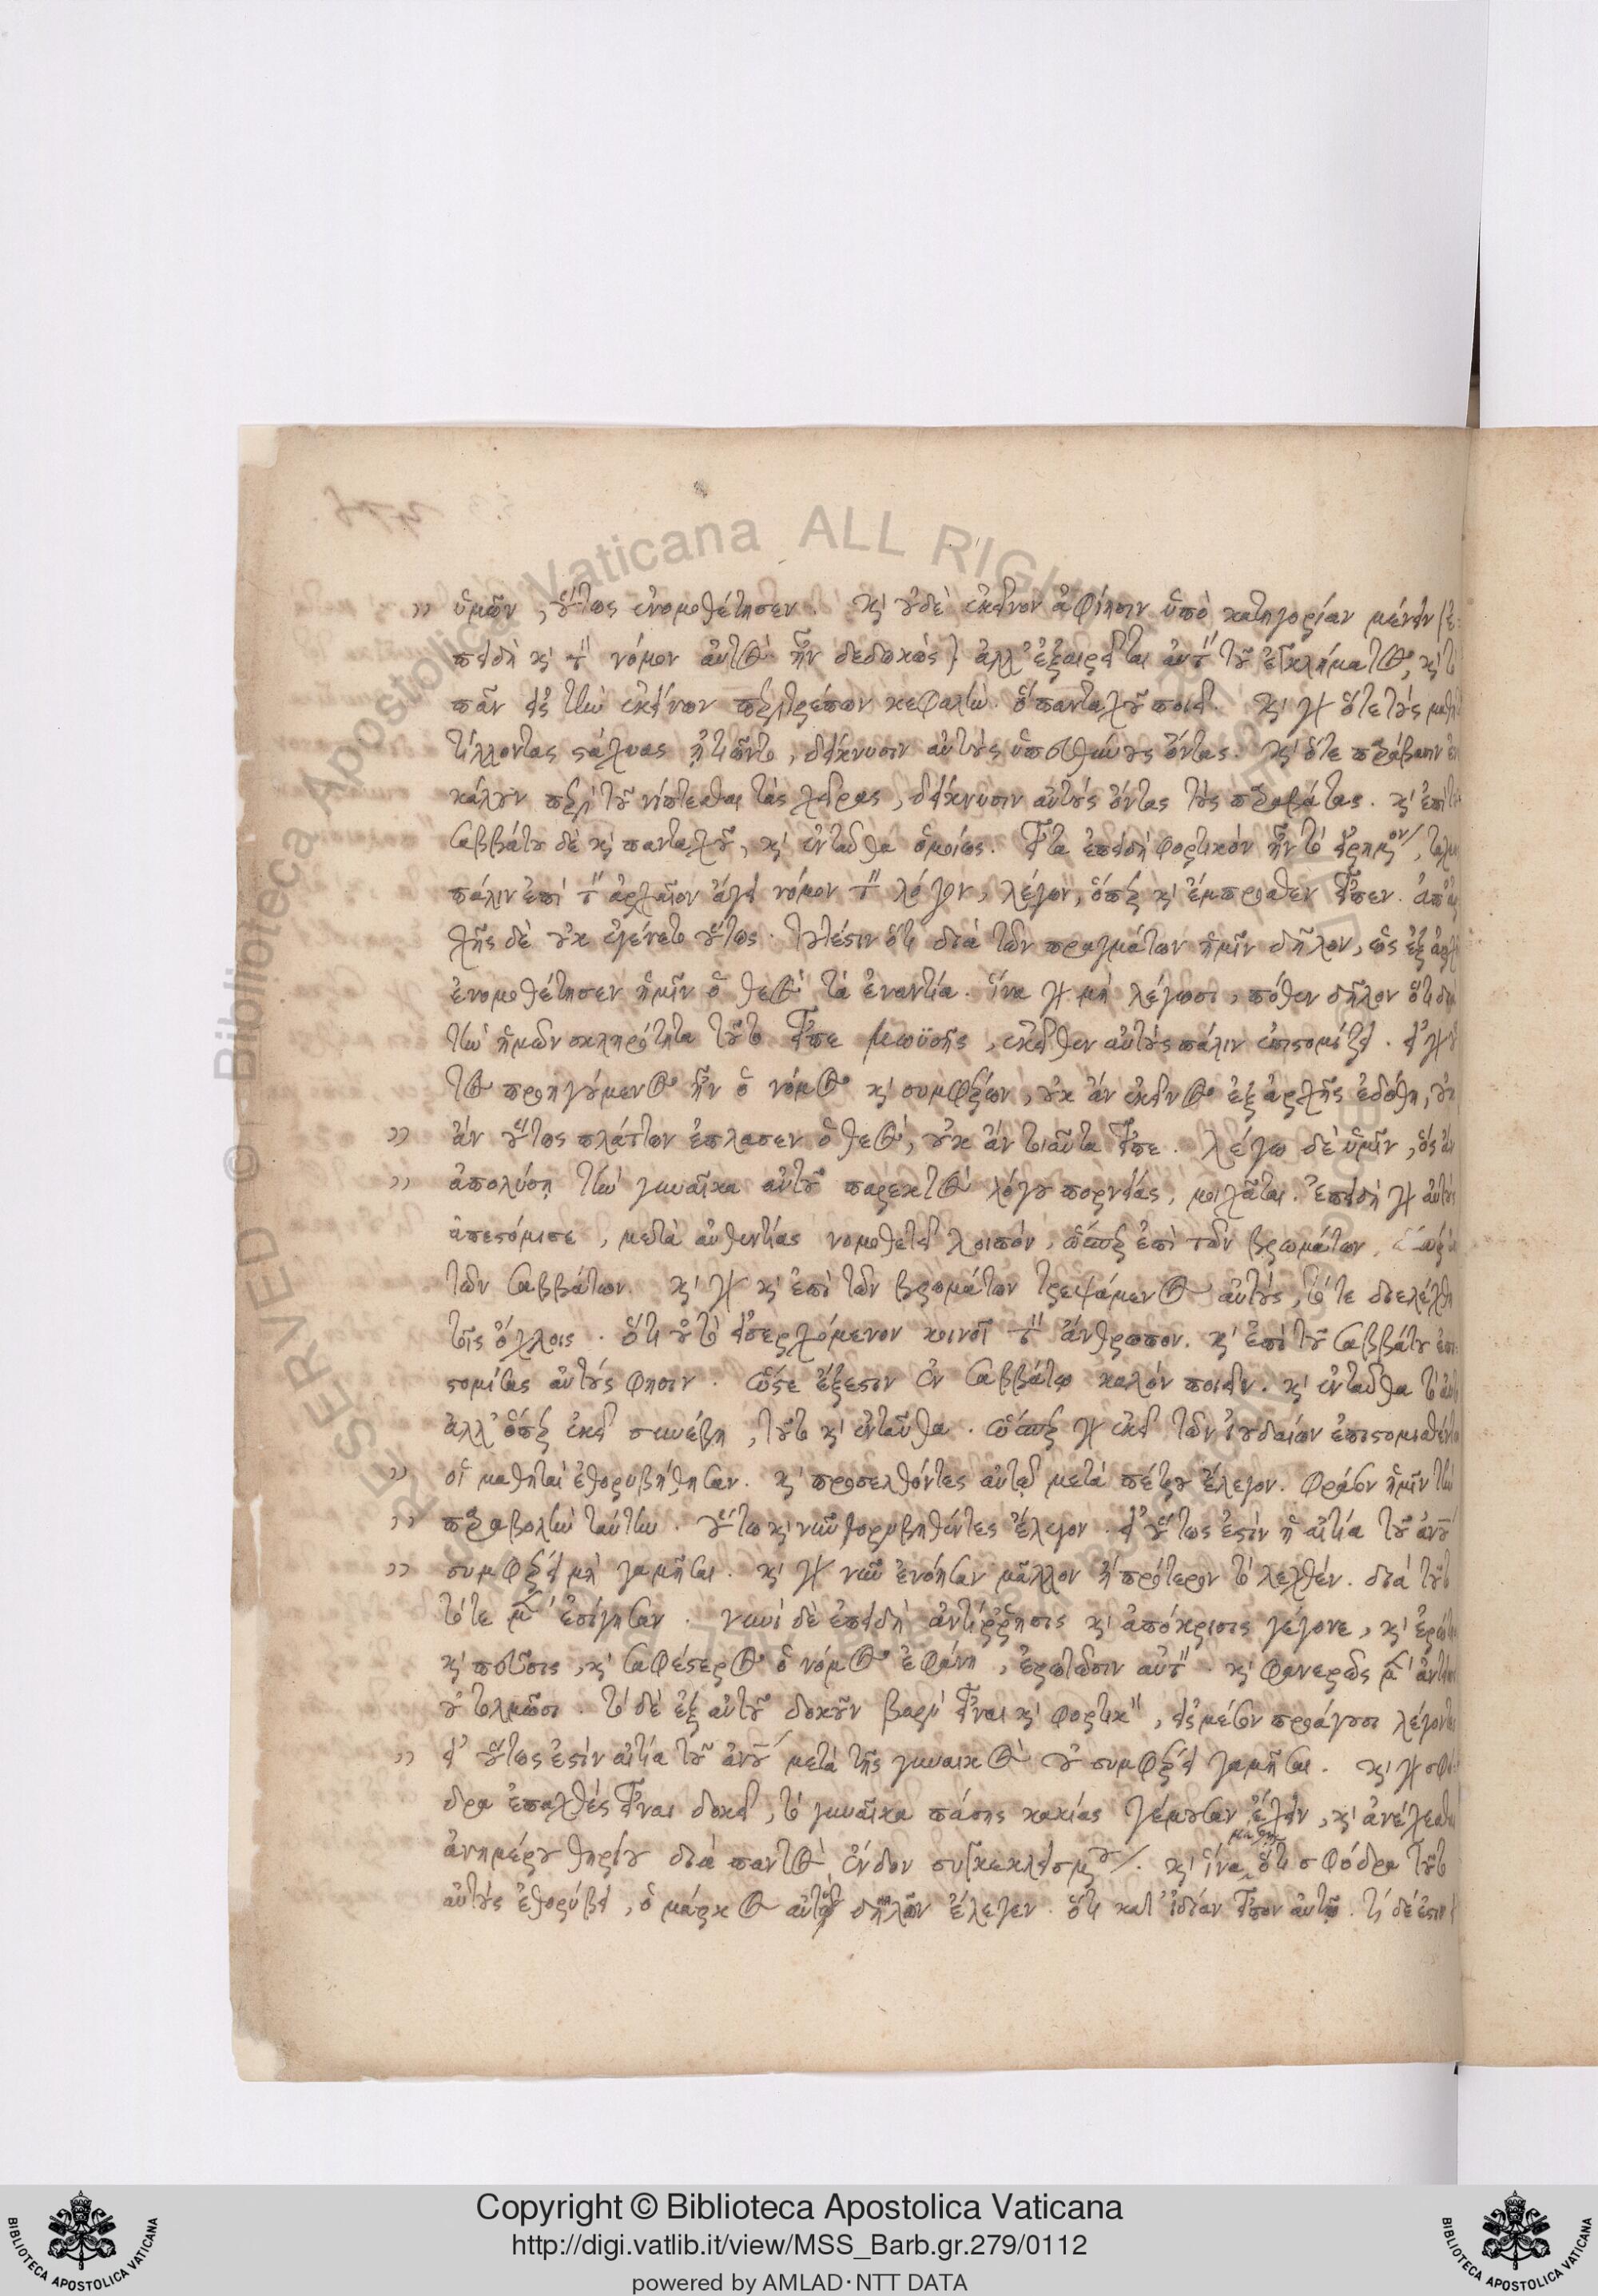 ὑμῶν, οὕτως ἐνομοθέτησεν. καὶ οὐδὲ ἐκεῖνον ἀφίησιν ὑπὸ κατηγορίαν μένειν (ἐ-
πειδὴ καὶ τὸν νόμον αὐτὸς ἦν δεδωκὼς) ἀλλ' ἐξαιρεῖται αὐτὸν τοῦ ἐγκλήματος, καὶ τὸ
πᾶν εἰς τὴν ἐκείνων περιτρέπων κεφαλήν. ὃ πανταχοῦ ποιεῖ. καὶ γὰρ ὅτε τοὺς
τίλλοντας στάχυας ᾐτιῶντο, δείκνυσιν αὐτοὺς ὑπευθύνους ὄντας. καὶ ὅτε παράβασιν
κάλουν περὶ τοῦ νίπτεσθαι τὰς χεῖρας, δείκνυσιν αὐτοὺς ὄντας τοὺς παραβάτας. καὶ ἐπὶ τοῦ
σαββάτου δὲ καὶ πανταχοῦ, καὶ ἐνταῦθα ὁμοίως. εἶτα ἐπειδὴ φορτικὸν ἦν τὸ εἰρημένον,
πάλιν ἐπὶ τὸν ἀρχαῖον ἄγει νόμον τὸν λόγον, λέγων, ὅπερ καὶ ἔμπροσθεν εἶπεν. ἀπ' ἀρ
χῆς δὲ οὐκ ἐγένετο οὕτως. τουτέστιν ὅτι διὰ τῶν πραγμάτων ἡμῖν δῆλον, ὡς ἐξ ἀρχῆς
ἐνομοθέτησεν ἡμῖν ὁ θεὸς τὰ ἐναντία. ἵνα γὰρ μὴ λέγωσι, πόθεν δῆλον ὅτι διὰ
τὴν ἡμῶν σκληρότητα τοῦτο εἶπε μωϋσῆς, ἐκεῖθεν αὐτοὺς πάλιν ἐπιστομίζει. εἰ γὰρ οὗ
τος προηγούμενος ἦν ὁ νόμος καὶ συμφέρων, οὐκ ἂν ἐκεῖνος ἐξ ἀρχῆς ἐδόθη, οὐκ
ἂν οὕτως πλάττων ἔπλασεν ὁ θεὸς, οὐκ ἂν τοιαῦτα εἶπε. λέγω δὲ ὑμῖν, ὃς ἂν
ἀπολύσῃ τὴν γυναῖκα αὐτοῦ παρεκτὸς λόγου πορνείας, μοιχᾶται. ἐπειδὴ γὰρ αὐτοὺς
ἐπεστόμισε, μετὰ αὐθεντίας νομοθετεῖ λοιπὸν, ὥσπερ ἐπὶ τῶν βρωμάτων,
τῶν σαββάτων. καὶ γὰρ καὶ ἐπὶ τῶν βρωμάτων τρεψάμενος αὐτοὺς, τότε διελέχθη
τοῖς ὄχλοις. ὅτι οὐ τὸ εἰσερχόμενον κοινοῖ τὸν ἄνθρωπον. καὶ ἐπὶ τοῦ σαββάτου ἐπι-
στομίσας αὐτούς φησιν. ὥστε ἔξεστιν ἐν σαββάτῳ καλὸν ποιεῖν. καὶ ἐνταῦθα τὸ αὐτὸ
ἀλλ' ὅπερ ἐκεῖ συνέβη, τοῦτο καὶ ἐνταῦθα. ὥσπερ γὰρ ἐκεῖ τῶν ἰουδαίων ἐπιστομισθέντων
οἱ μαθηταὶ ἐθορυβήθησαν. καὶ προσελθόντες αὐτῷ μετὰ πέτρου ἔλεγον. φράσον ἡμῖν τὴν
παραβολὴν ταύτην. οὕτω καὶ νῦν θορυβηθέντες ἔλεγον. εἰ οὕτως ἐστὶν ἡ αἰτία τοῦ ἀνοῦ
συμφέρει μὴ γαμῆσαι. καὶ γὰρ νῦν ἐνόησαν μᾶλλον ἢ πρότερον τὸ λεχθέν. διὰ τοῦτο
τότε μὲν ἐσίγησαν. νυνὶ δὲ ἐπειδὴ ἀντίῤῥησις καὶ ἀπόκρισις γέγονε, καὶ ἐρώτησις
καὶ πεῦσις, καὶ σαφέστερος ὁ νόμος ἐφάνη, ἐρωτῶσιν αὐτόν. καὶ φανερῶς μὲν ἀντειπεῖν
οὐ τολμῶσι. τὸ δὲ ἐξ αὐτοῦ δοκοῦν βαρὺ εἶναι καὶ φορτικὸν, εἰς μέσον προάγουσι λέγοντες
εἰ οὕτως ἐστὶν αἰτία τοῦ ἀνοῦ μετὰ τῆς γυναικὸς οὐ συμφέρει γαμῆσαι. καὶ γὰρ σφό
δρα ἐπαχθὲς εἶναι δοκεῖ, τὸ γυναῖκα πάσης κακίας γέμουσαν ἔχειν, καὶ ἀνέχεσθαι
ἀνημέρου θηρίου διὰ παντὸς ἔνδον συγκεκλεισμένου. καὶ ἵνα μάθῃς ὅτι σφόδρα τοῦτο
αὐτοὺς ἐθορύβει, ὁ μάρκος αὐτὸ δηλῶν ἔλεγεν. ὅτι κατ' ἰδίαν εἶπον αὐτῷ. τί δέ ἐστιν
Copyright © Biblioteca Apostolica Vaticana
http://digi.vatlib.it/view/MSS_Barb.gr.279/0112
powered by AMLAD·NTT DATA